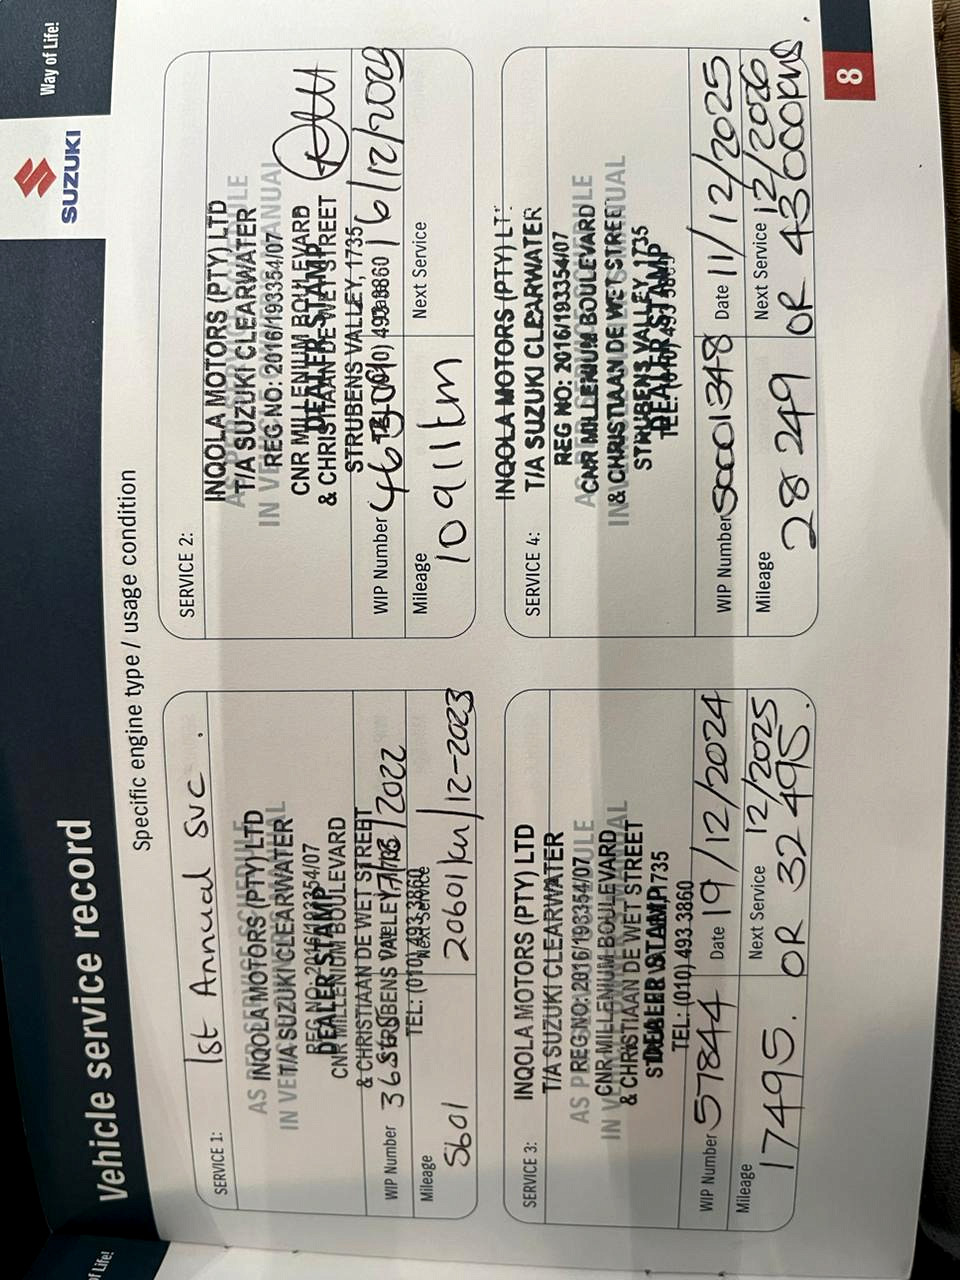 of Life!
Vehicle service record
SUZUKI
Way of Life!
Specific engine type / usage condition
SERVICE 1: 1st Annual SVC.
AS PER SERVICE SCHEDULE
INQOLA MOTORS (PTY) LTD
T/A SUZUKI CLEARWATER
REG NO: 2016/193354/07
DEALER STAMP
CNR MILLENIUM BOULEVARD
& CHRISTIAAN DE WET STREET
STRUBENS VALLEY, 1735
WIP Number
/2022
TEL: (010) 493 3860
Mileage 5601
Next Service 20601km/12-2023
SERVICE 2:
INQOLA MOTORS (PTY) LTD
T/A SUZUKI CLEARWATER
REG NO: 2016/193354/07
IN VEHICLE OWNER MANUAL
CNR MILLENIUM BOULEVARD
DEALER STAMP
& CHRISTIAAN DE WET STREET
STRUBENS VALLEY, 1735
WIP Number
16/12/2023
Mileage 10911km
Next Service
SERVICE 3:
INQOLA MOTORS (PTY) LTD
T/A SUZUKI CLEARWATER
REG NO: 2016/193354/07
CNR MILLENIUM BOULEVARD
& CHRISTIAAN DE WET STREET
DEALER STAMP
TEL: (010) 493 3860
WIP Number 57844 Date 19/12/2024
Mileage 17495.
Next Service 12/2025
OR 32495.
SERVICE 4:
INQOLA MOTORS (PTY) LT
T/A SUZUKI CLEARWATER
REG NO: 2016/193354/07
CNR MILLENIUM BOULEVARD
& CHRISTIAAN DE WET STREET
STRUBENS VALLEY, 1735
DEALER STAMP
WIP Number S0001348 Date 11/12/2025
Mileage 28 249
Next Service 12/2026
OR 43000kms.
8